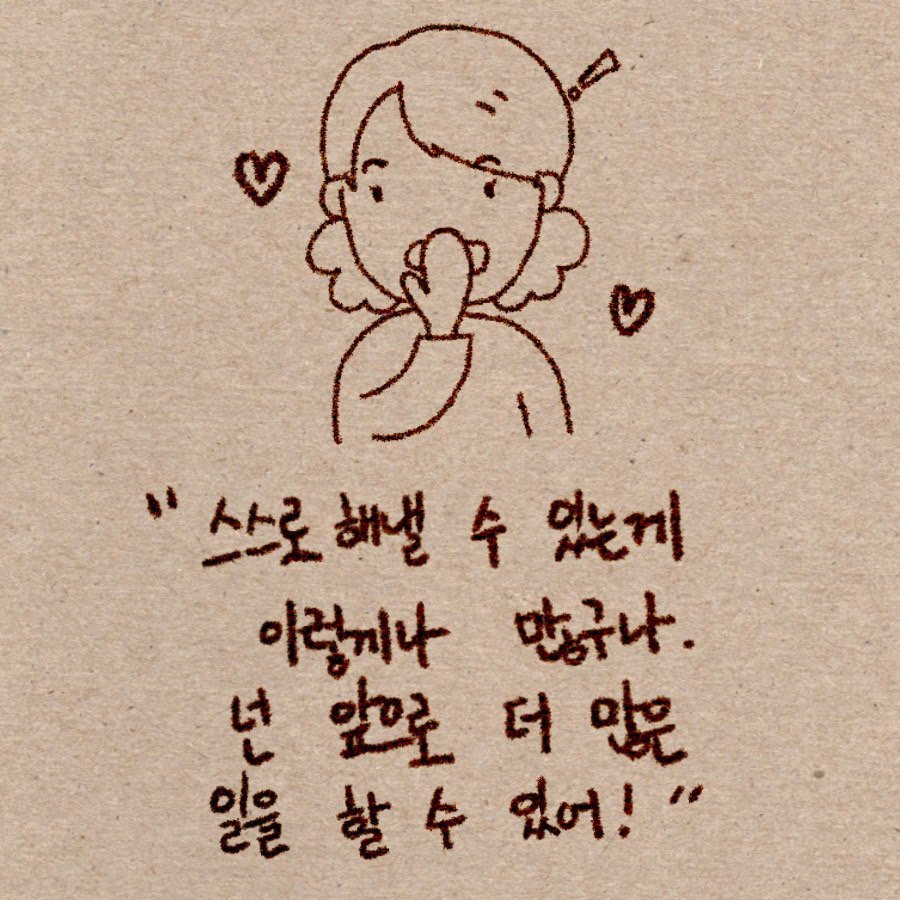 "스스로 해낼 수 있는게
이렇게나 많구나.
넌 앞으로 더 많은
일을 할 수 있어!"